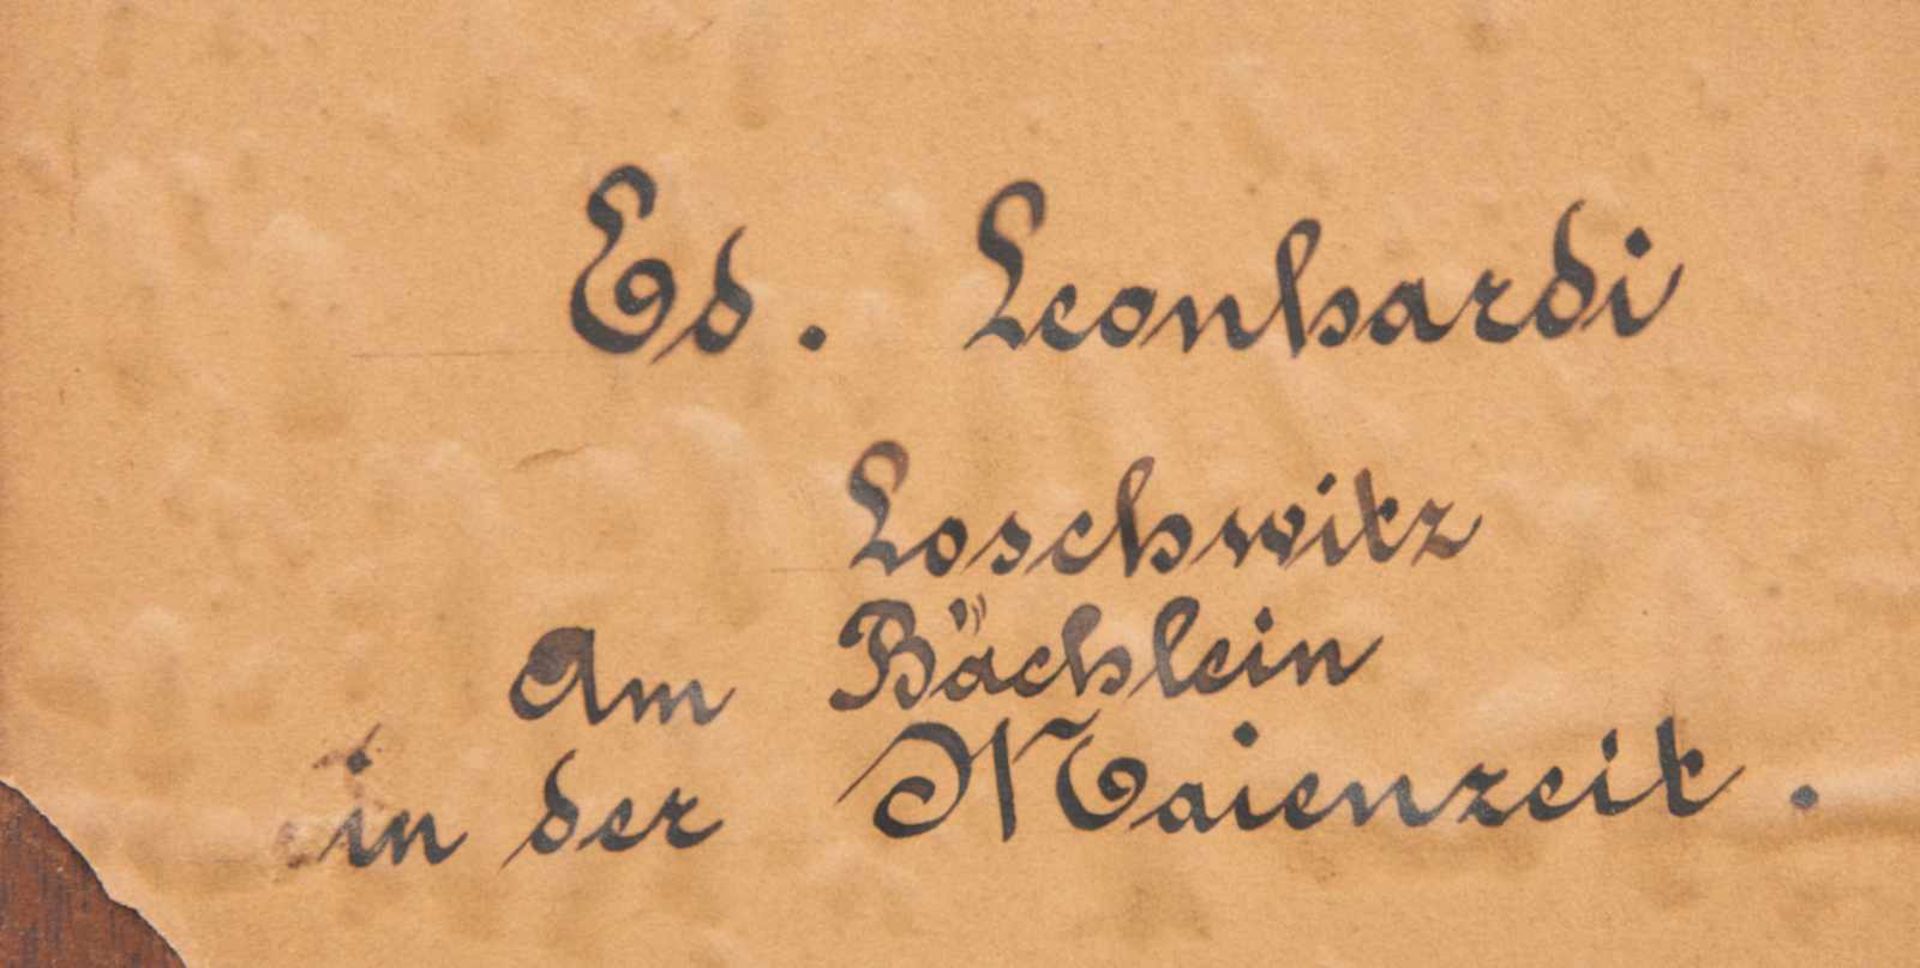 Ed. Leonhardi
Loschwitz
Am Bächlein
in der Maienzeit.